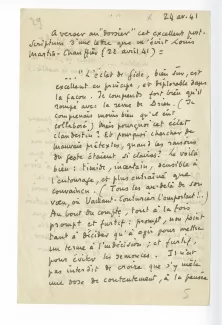 24 av. 41
A verser au dossier cet excellent post-
scriptum d'une lettre que m'écrit Louis
Martin-Chauffier (22 avril 41) =
..."L'éclat de Gide, bien sûr, est
excellent en principe, et déplorable dans
la façon. Je comprends fort bien qu'il
rompe avec la revue de Drieu. (Je
comprenais moins bien qu'il en
collaborât) Mais pourquoi cet éclat
clandestin? Et pourquoi chercher de
mauvais prétextes, quand les raisons
du geste étaient si claires? Le voilà
bien: timide, incertain, sensible à
l'entourage, et plus entraîné que
convaincu. (Tous les au-delà de son
vœu, où Vaillant-Couturier l'emportait!)
Au bout du compte, tout à la fois
prompt et furtif: prompt, non point
tant à décider qu'à agir pour mettre
un terme à l'indécision; et furtif,
pour éviter les remous. Il n'est
pas interdit de croire que s'y mêle
une dose de contentement, à la pensée
5